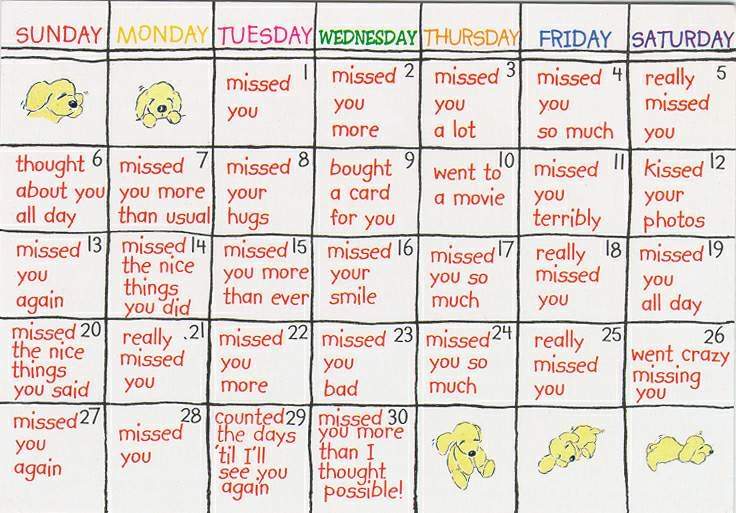 SUNDAY MONDAY TUESDAY WEDNESDAY THURSDAY FRIDAY SATURDAY
1
missed
you
2
missed
you
more
3
missed
you
a lot
4
missed
you
so much
5
really
missed
you
6
thought
about you
all day
7
missed
you more
than usual
8
missed
your
hugs
9
bought
a card
for you
10
went to
a movie
11
missed
you
terribly
12
kissed
your
photos
13
missed
you
again
14
missed
the nice
things
you did
15
missed
you more
than ever
16
missed
your
smile
17
missed
you so
much
18
really
missed
you
19
missed
you
all day
20
missed
the nice
things
you said
21
really
missed
you
22
missed
you
more
23
missed
you
bad
24
missed
you so
much
25
really
missed
you
26
went crazy
missing
you
27
missed
you
again
28
missed
you
29
counted
the days
'til I'll
see you
again
30
missed
you more
than I
thought
possible!